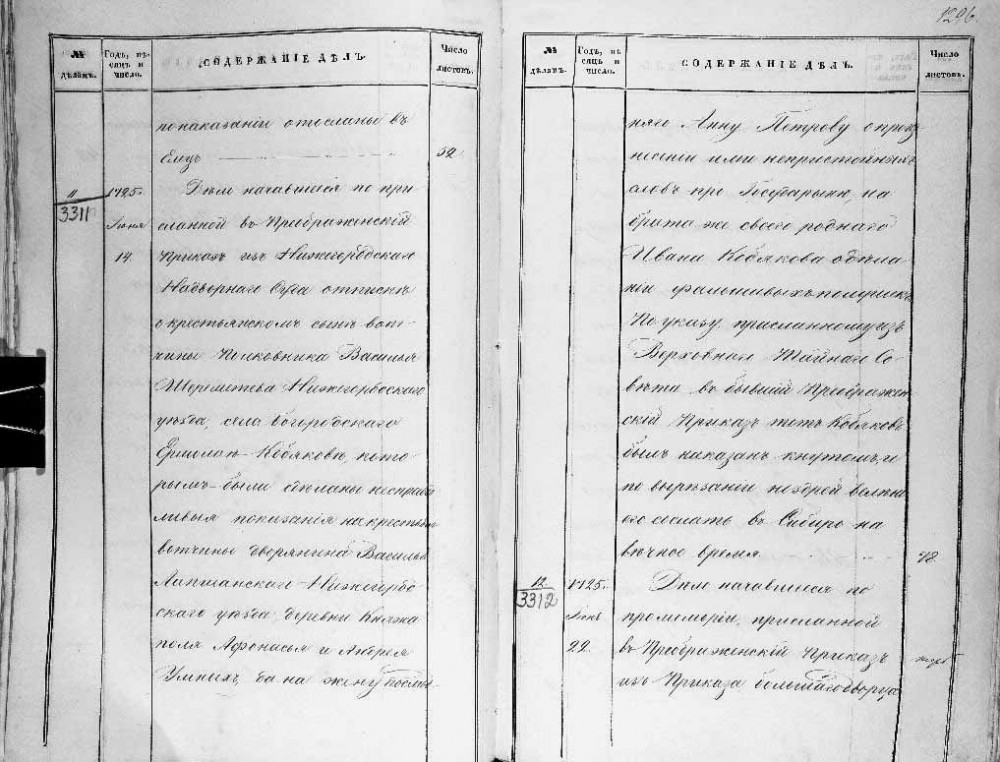 1296
№ дѣламъ.
Годъ, мѣсяцъ и число.
СОДЕРЖАНІЕ ДѢЛЪ.
Число листовъ.
по наказаніи отосланы въ
Елецъ 52
11
3311
1725.
Іюня
14.
Дѣло начавшееся по при
сланной въ Преображенскій
Приказъ изъ Нижегородскаго
Надворнаго Суда отпискѣ
о крестьянскомъ сынѣ вот
чины Полковника Василья
Шереметева Нижегородскаго
уѣзда, села Богородскаго
Ермолаѣ Кобяковѣ, кото
рымъ были сдѣланы несправед
ливыя показанія на крестьянъ
вотчины дворянина Василья
Лапшанскаго Нижегородс
скаго уѣзда, деревни Княжа
поля Афонасья и Андрея
Умныхъ, да на жену послѣд
№ дѣламъ.
Годъ, мѣсяцъ и число.
СОДЕРЖАНІЕ ДѢЛЪ.
Число листовъ.
няго Анну Петрову о произ
несеніи ими непристойныхъ
словъ про Государыню, на
брата же своего роднаго
Ивана Кобякова о дѣла
ніи фальшивыхъ полушекъ.
По указу, присланному изъ
Верховнаго Тайнаго Со
вѣта въ бывшій Преображен
скій Приказъ тотъ Кобяковъ
былъ наказанъ кнутомъ, и
по вырѣзаніи ноздрей велѣно
его сослать въ Сибирь на
вѣчное время. 78
12
3312
1725.
Іюнь
22.
Дѣло начавшееся по
промеморіи, присланной
въ Преображенскій Приказъ
изъ Приказа большаго дворца